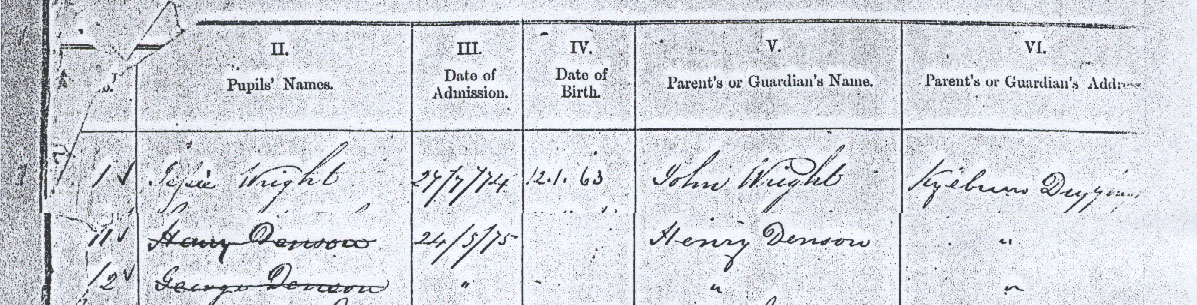 II. III. IV. V. VI.
Pupils' Names. Date of Admission. Date of Birth. Parent's or Guardian's Name. Parent's or Guardian's Address
1 Wright 27/7/74 12.1.63 John Wright Kyeburn
11 Henry Denson 24/5/75 Henry Denson "
12 George Denson " " "